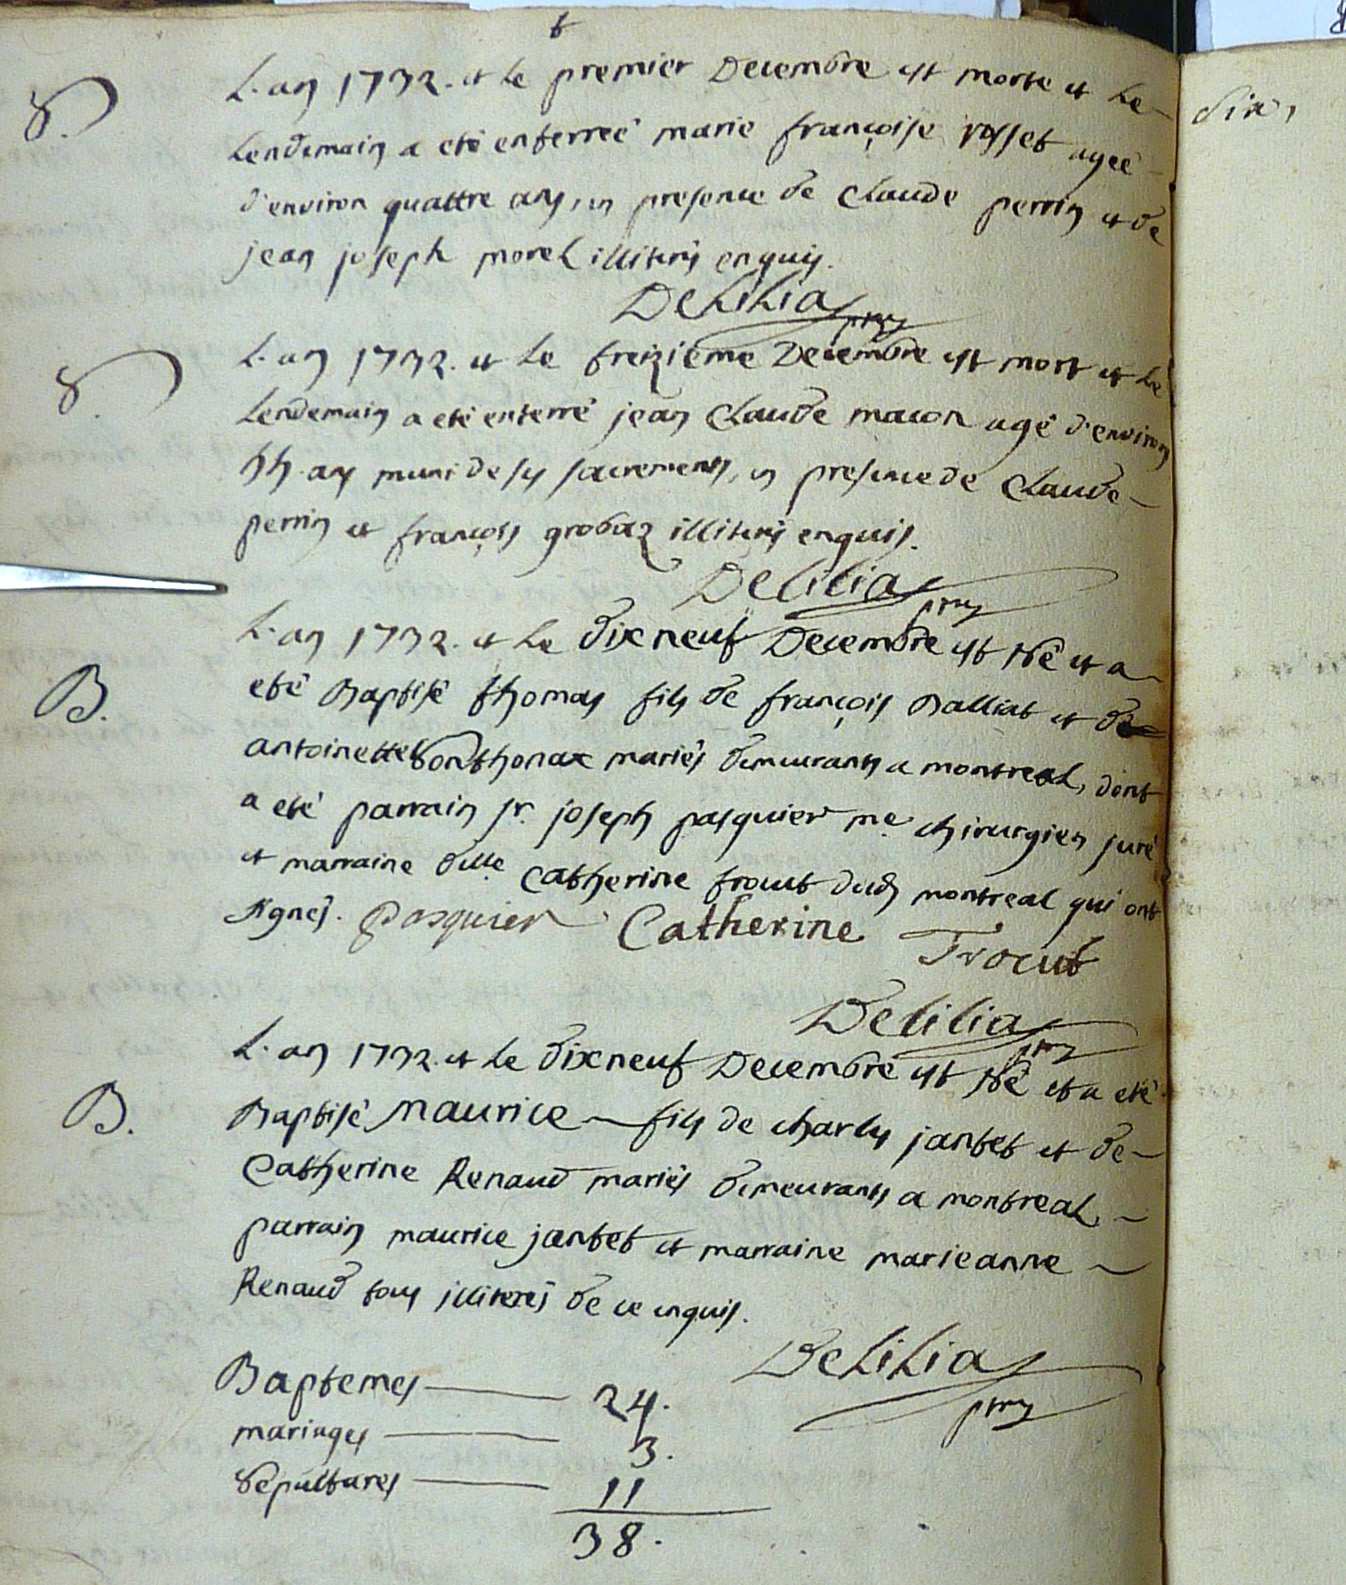 6
S. L'an 1732. et le premier Decembre est morte et le
lendemain a eté enterreé marie françoise rosset ageé
d'environ quattre ans, en presence de Claude perrin et de
jean joseph morel illiterés enquis.
Delilia ptre
S. L'an 1732. et le treizieme Decembre est mort et le
lendemain a eté enterré jean Claude macon agé d'environ
55 ans muni de ses sacrements, en presence de Claude
perrin et françois grobaz illiterés enquis.
Delilia ptre
B. L'an 1732. et le dixneuf Decembre est né et a
eté Baptisé thomas fils de françois Balliat et de
antoinette Sonthonax mariés demeurants a montreal, dont
a eté parrain sr. joseph pasquier me chirurgien juré
et marraine dlle Catherine trocut dudt montreal qui ont
signés. Pasquier Catherine
Trocut
Delilia ptre
B. L'an 1732. et le dixneuf Decembre est né et a eté
Baptisé maurice fils de charles jantet et de
Catherine Renaud mariés demeurants a montreal
parrain maurice jantet et marraine marieanne
Renaud tous illiterés de ce enquis.
Delilia ptre
Baptemes 24.
mariages 3.
sepultures 11
38.
six,